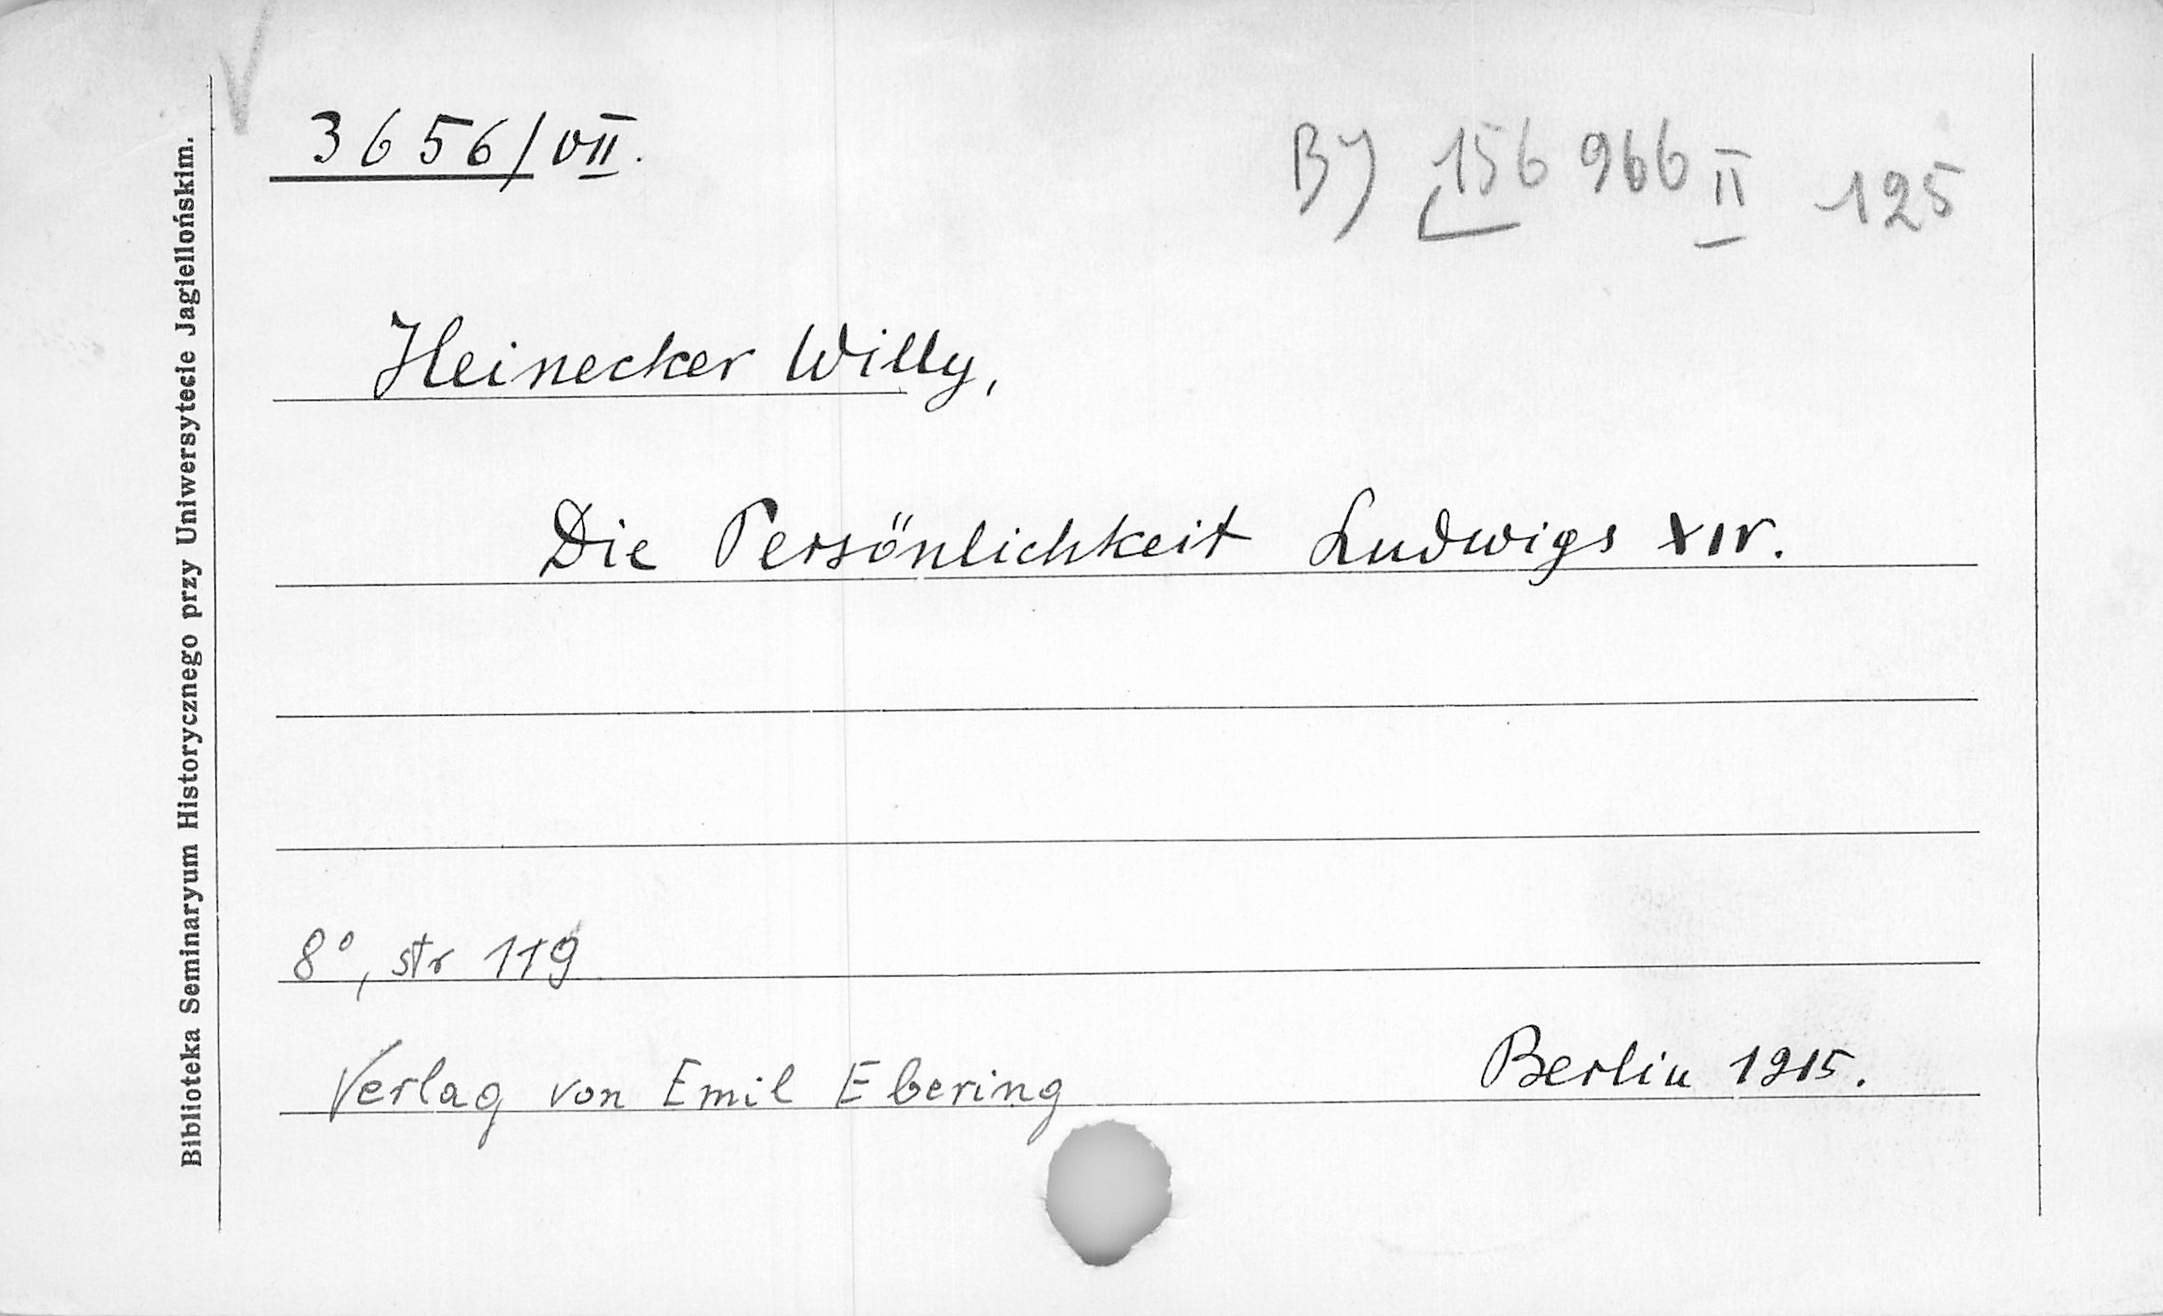 3656/VII.
BJ 156 966 II 125
Heinecker Willy,
Die Persönlichkeit Ludwigs XIV.
8°, str 119
Verlag von Emil Ebering
Berlin 1915.
Biblioteka Seminaryum Historycznego przy Uniwersytecie Jagiellońskim.